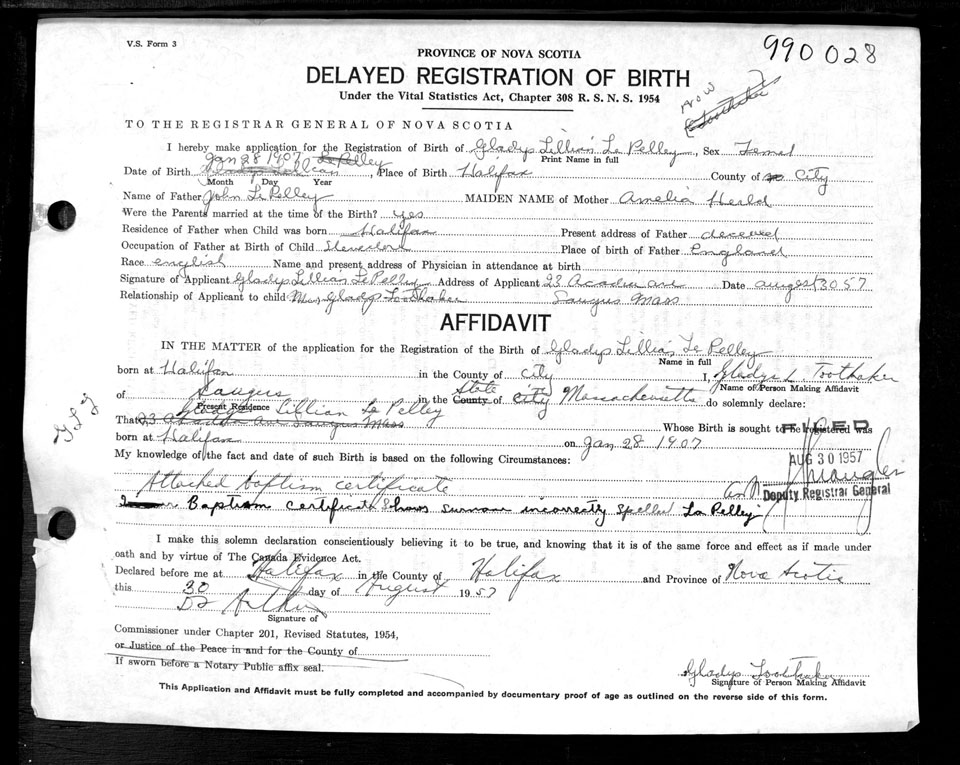 V.S. Form 3
990 028
PROVINCE OF NOVA SCOTIA
DELAYED REGISTRATION OF BIRTH
Under the Vital Statistics Act, Chapter 308 R. S. N. S. 1954
now Toothaker
TO THE REGISTRAR GENERAL OF NOVA SCOTIA
I hereby make application for the Registration of Birth of Gladys Lillian Le Pelley, Sex Femal
Print Name in full
Jan 28 1907 Le Pelley
Date of Birth, Place of Birth Halifax County of City
Month Day Year
Name of Father John Le Pelley MAIDEN NAME of Mother Amelia Herld
Were the Parents married at the time of the Birth? yes
Residence of Father when Child was born Halifax Present address of Father
Occupation of Father at Birth of Child Place of birth of Father England
Race english Name and present address of Physician in attendance at birth
Signature of Applicant Gladys Lillian Le Pelley Address of Applicant 23 Acadia ave Date augest 30 57
Relationship of Applicant to child Mrs Gladys Toothaker Saugus Mass
AFFIDAVIT
IN THE MATTER of the application for the Registration of the Birth of Gladys Lillian Le Pelley
Name in full
born at Halifax in the County of City I, Gladys L. Toothaker
Name of Person Making Affidavit
of Saugus in the County of State City Massachusetts do solemnly declare:
Present Residence
Gladys Lillian Le Pelley
That 23 Acadia av Saugus Mass Whose Birth is sought to be registered was
G L T
born at Halifax on Jan 28 1907
FILED
My knowledge of the fact and date of such Birth is based on the following Circumstances:
AUG 30 1957
Attached baptism certificate
Deputy Registrar General
Baptism certificate shows surname incorrectly spelled La Pelley
I make this solemn declaration conscientiously believing it to be true, and knowing that it is of the same force and effect as if made under
oath and by virtue of The Canada Evidence Act.
Declared before me at Halifax in the County of Halifax and Province of Nova Scotia
this 30 day of August 1957
Signature of
Commissioner under Chapter 201, Revised Statutes, 1954,
or Justice of the Peace in and for the County of
If sworn before a Notary Public affix seal.
Gladys Toothaker
Signature of Person Making Affidavit
This Application and Affidavit must be fully completed and accompanied by documentary proof of age as outlined on the reverse side of this form.